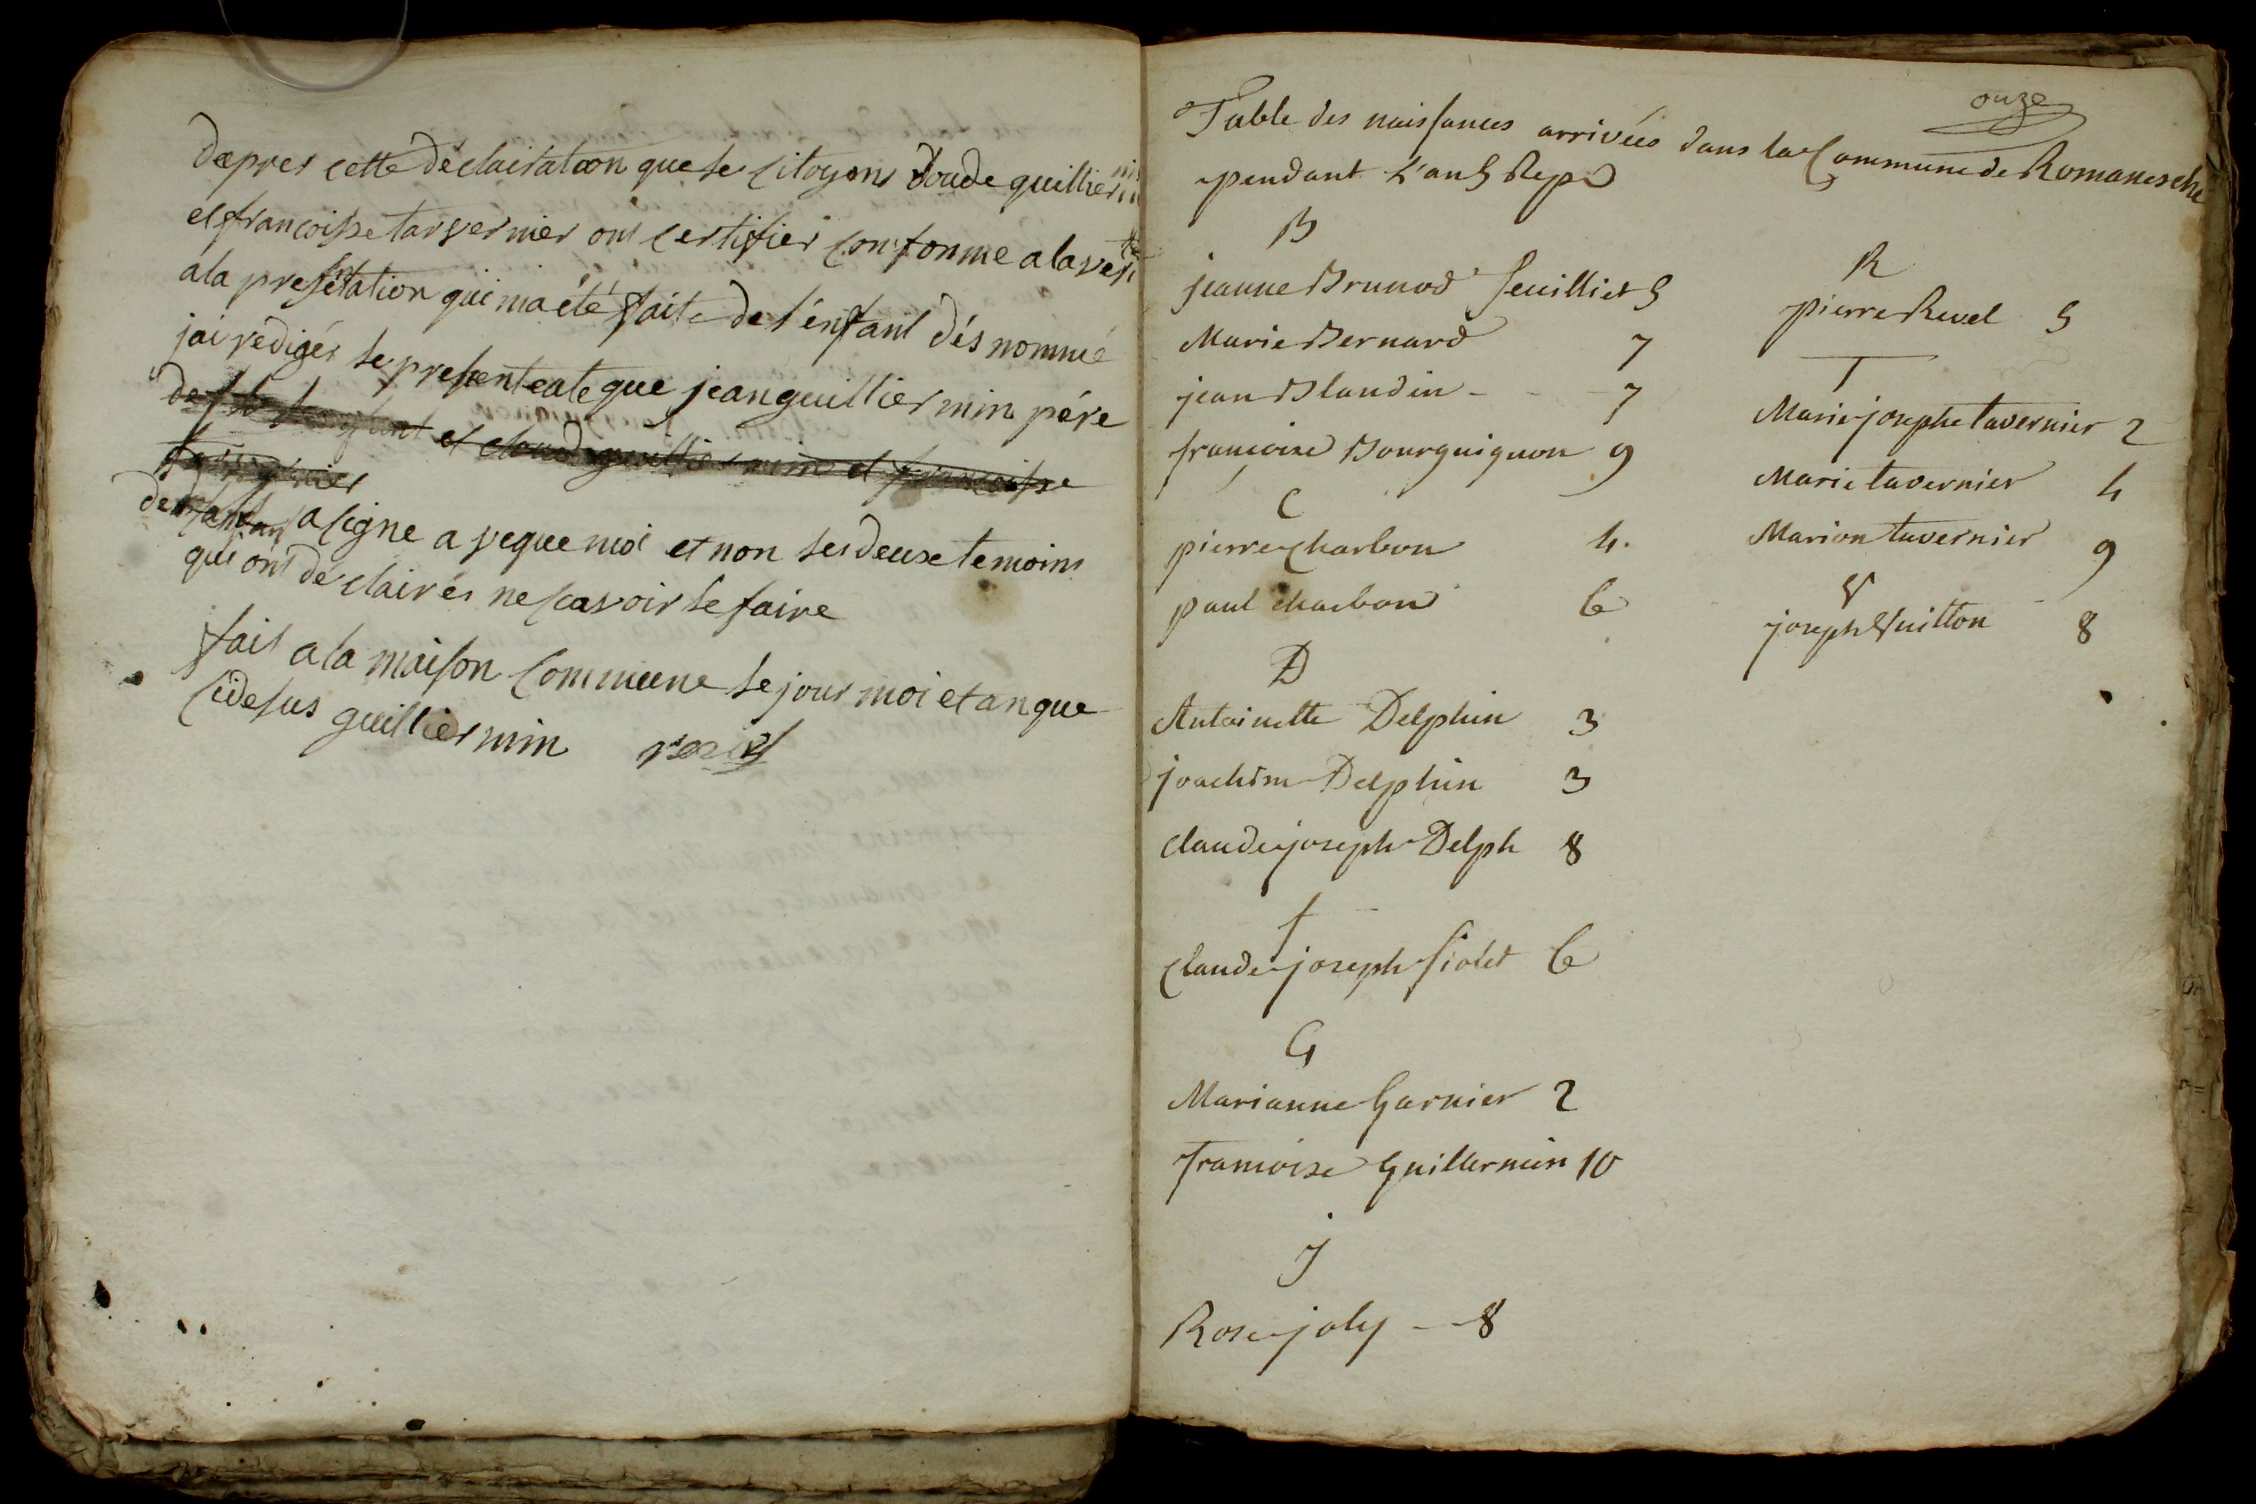 daprer cette déclairation que se Citoyens Cloude guilliermin
et françoisse tarvernier ont certifier Conforme a la verité
a la presentation qui ma été faite de l'enfant dés nommé
jai redigér se presente acte que jean guilliermin pére
de et cloud guilliermin et francoisse
tarvernier
de l'anfans a signe a veque moi et non ser deuxe temoins
qui ont dé clairér ne scavoir se faire
fait a la maison Commune se jour moi et an que
Cidesus guilliermin
onze
Table des naissances arrivées dans la Commune de Romanesche
pendant L'an 5 Rep
B
jeanne Brunod feuilliet 5
Marie Bernard 7
jean Blandin - - - 7
françoise Bourguignon 9
C
pierre Charbon 4.
paul charbon 6
D
Antoinette Delphin 3
joachim Delphin 3
claude joseph Delph 8
f
Claude joseph fiolet 6
G
Marianne Garnier 2
francoise Guillermin 10
J
Rose joly - - 8
R
pierre Revel 5
T
Marie josephe tavernier 2
Marie tavernier 4
Marion tavernier 9
V
joseph Vuitton 8